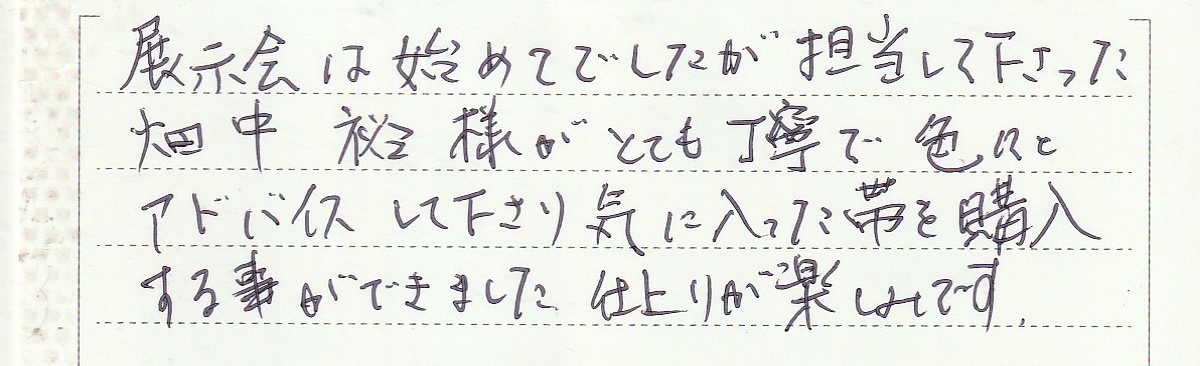 展示会は始めてでしたが担当して下さった
畑中 裕 様がとても丁寧で色々と
アドバイスして下さり気に入った帯を購入
する事ができました 仕上りが楽しみです.